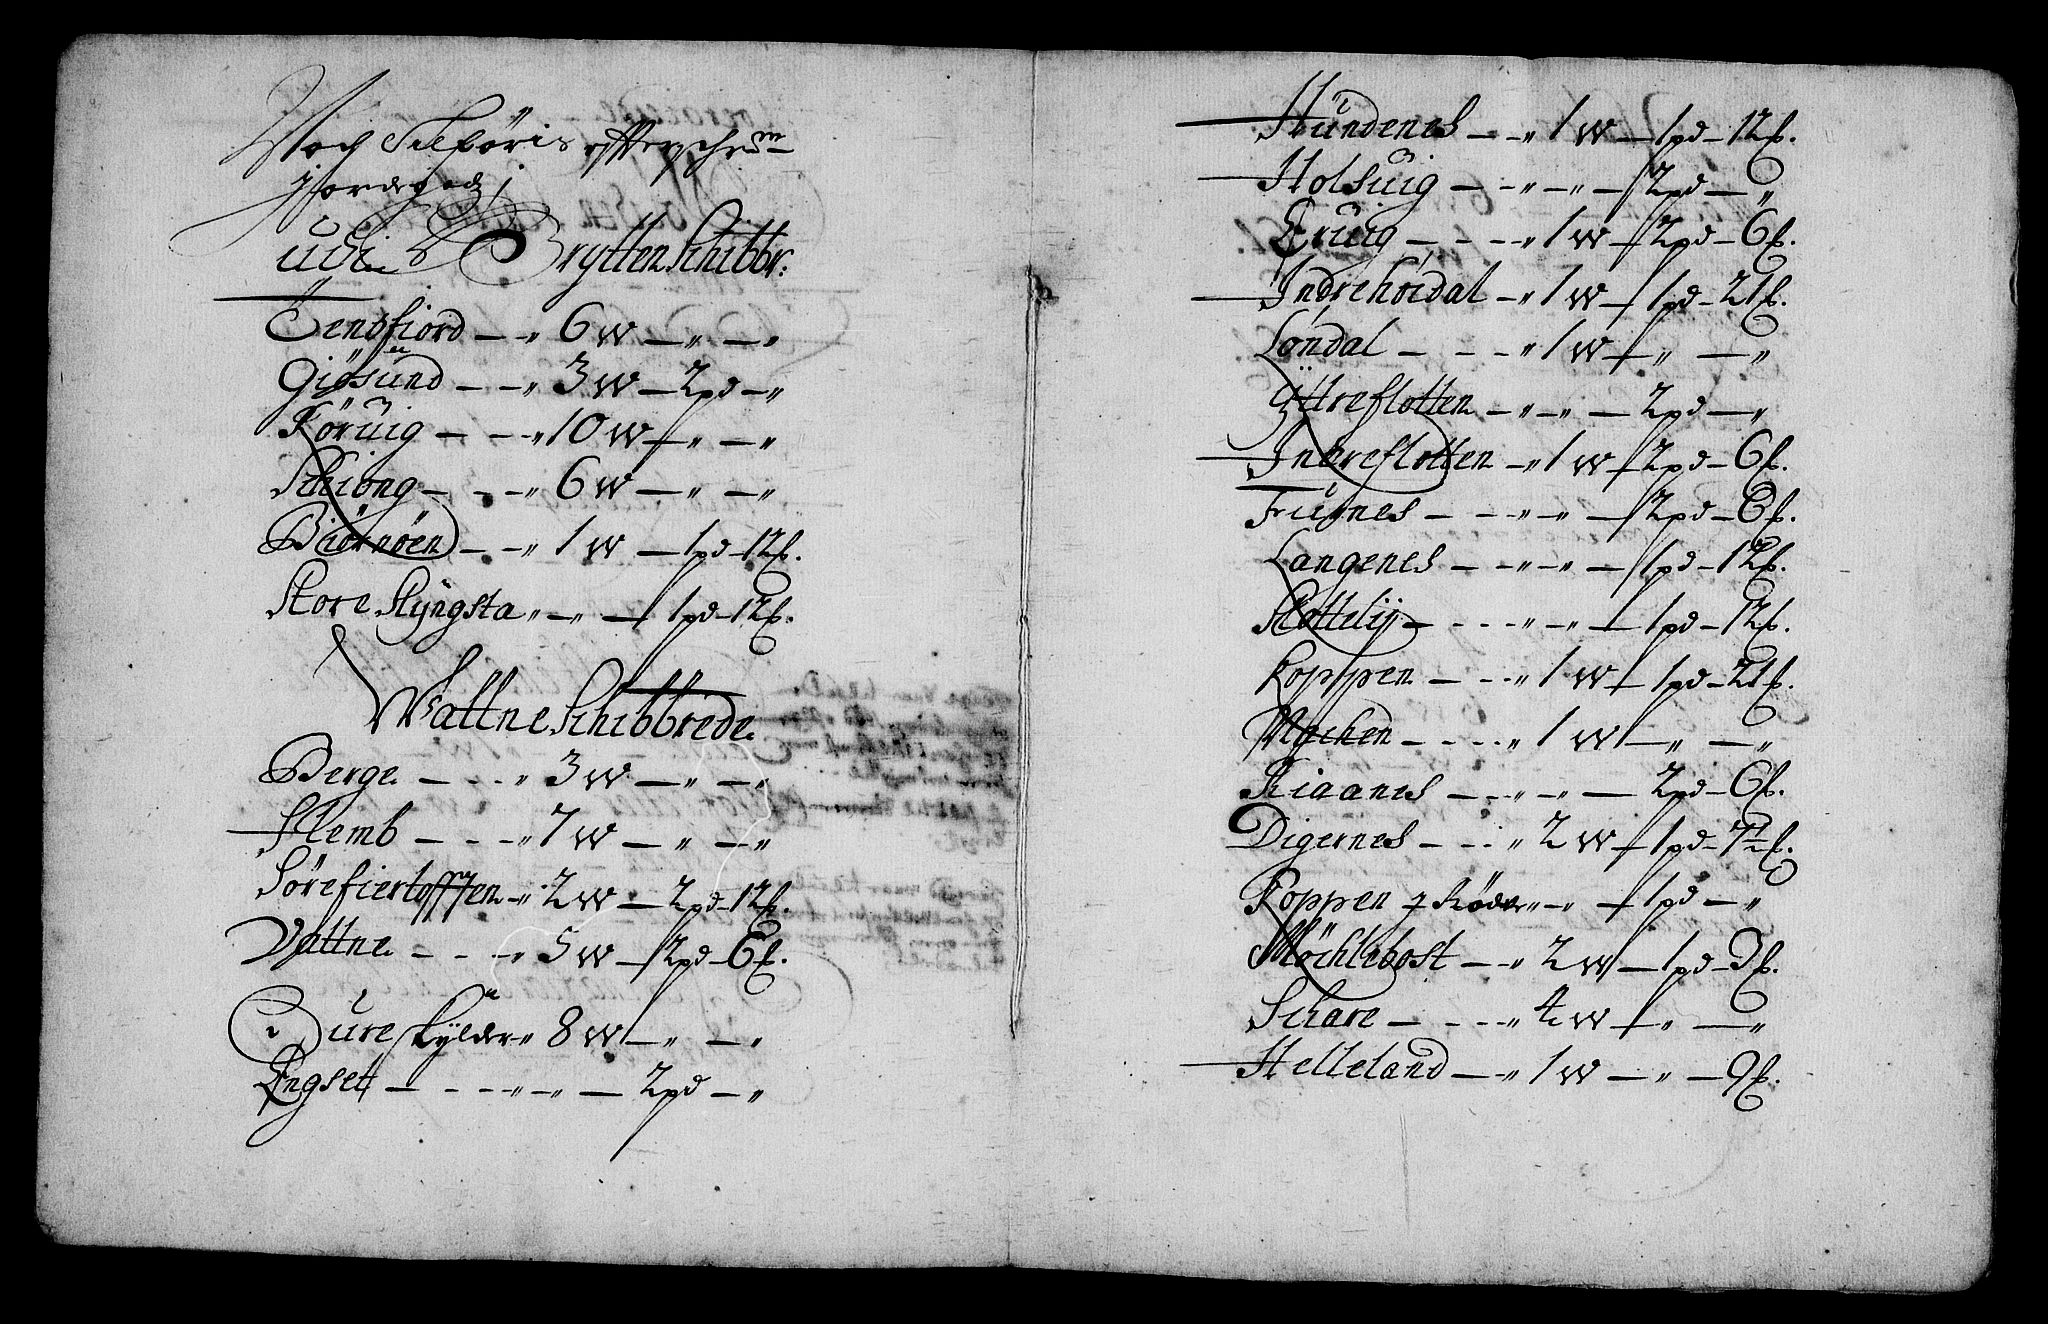 Noch Tilhöris effterschr:ne
Jordegodz,
udi Grytten Schibbr:
Tensfiord — „ 6 W — „ — „
Gigsund — — „ 3 W — 2 pd — „
Föruig — - — „ 10 W — „ — „
Schiong — - — „ 6 W — „ — „
Biörnöen — — „ 1 W — 1 pd — 12 ℔.
Store Slyngsta „ — „ — 1 pd — 12 ℔.
Wattne Schibbrede.
Berge — - - „ 3 W — „ — „
Slemb — - - „ 7 W — „ — „
Sörefiertofften — „ 2 W — 2 pd — 12 ℔.
Vattne — - - „ 5 W — 2 pd — 6 ℔.
Bure skylder „ 8 W — „ — „
Engset — - - - „ — „ — 2 pd — „
Hundenes — „ 1 W — 1 pd — 12 ℔.
Holsuig — - „ — „ — 2 pd — „
Eruig — - - — „ 1 W — 2 pd — 6 ℔.
Indrehöidal — „ 1 W — 1 pd — 21 ℔.
Løndal — - - — „ 1 W — „ — „
Yttreflotten — „ — „ — 2 pd — „
Indreflotten — „ 1 W — 2 pd — 6 ℔.
Furnes — - - — „ — „ — 2 pd — 6 ℔.
Langenes — - — „ — „ — 1 pd — 12 ℔.
Slottelij — - - - — „ — „ — 1 pd — 12 ℔.
Koppen — - - „ 1 W — 1 pd — 21 ℔.
Mychen — - - - „ 1 W — „ — „
Kiaanes — - — „ — „ — 2 pd — 6 ℔.
Digernes — - - „ 2 W — 1 pd — 7½ ℔.
Koppen „ — „ — 1 pd — „
Möchlebost — „ 2 W — 1 pd — 3 ℔.
Schare — - - — „ 4 W — „ — „
Helleland — „ 1 W — „ — 9 ℔.